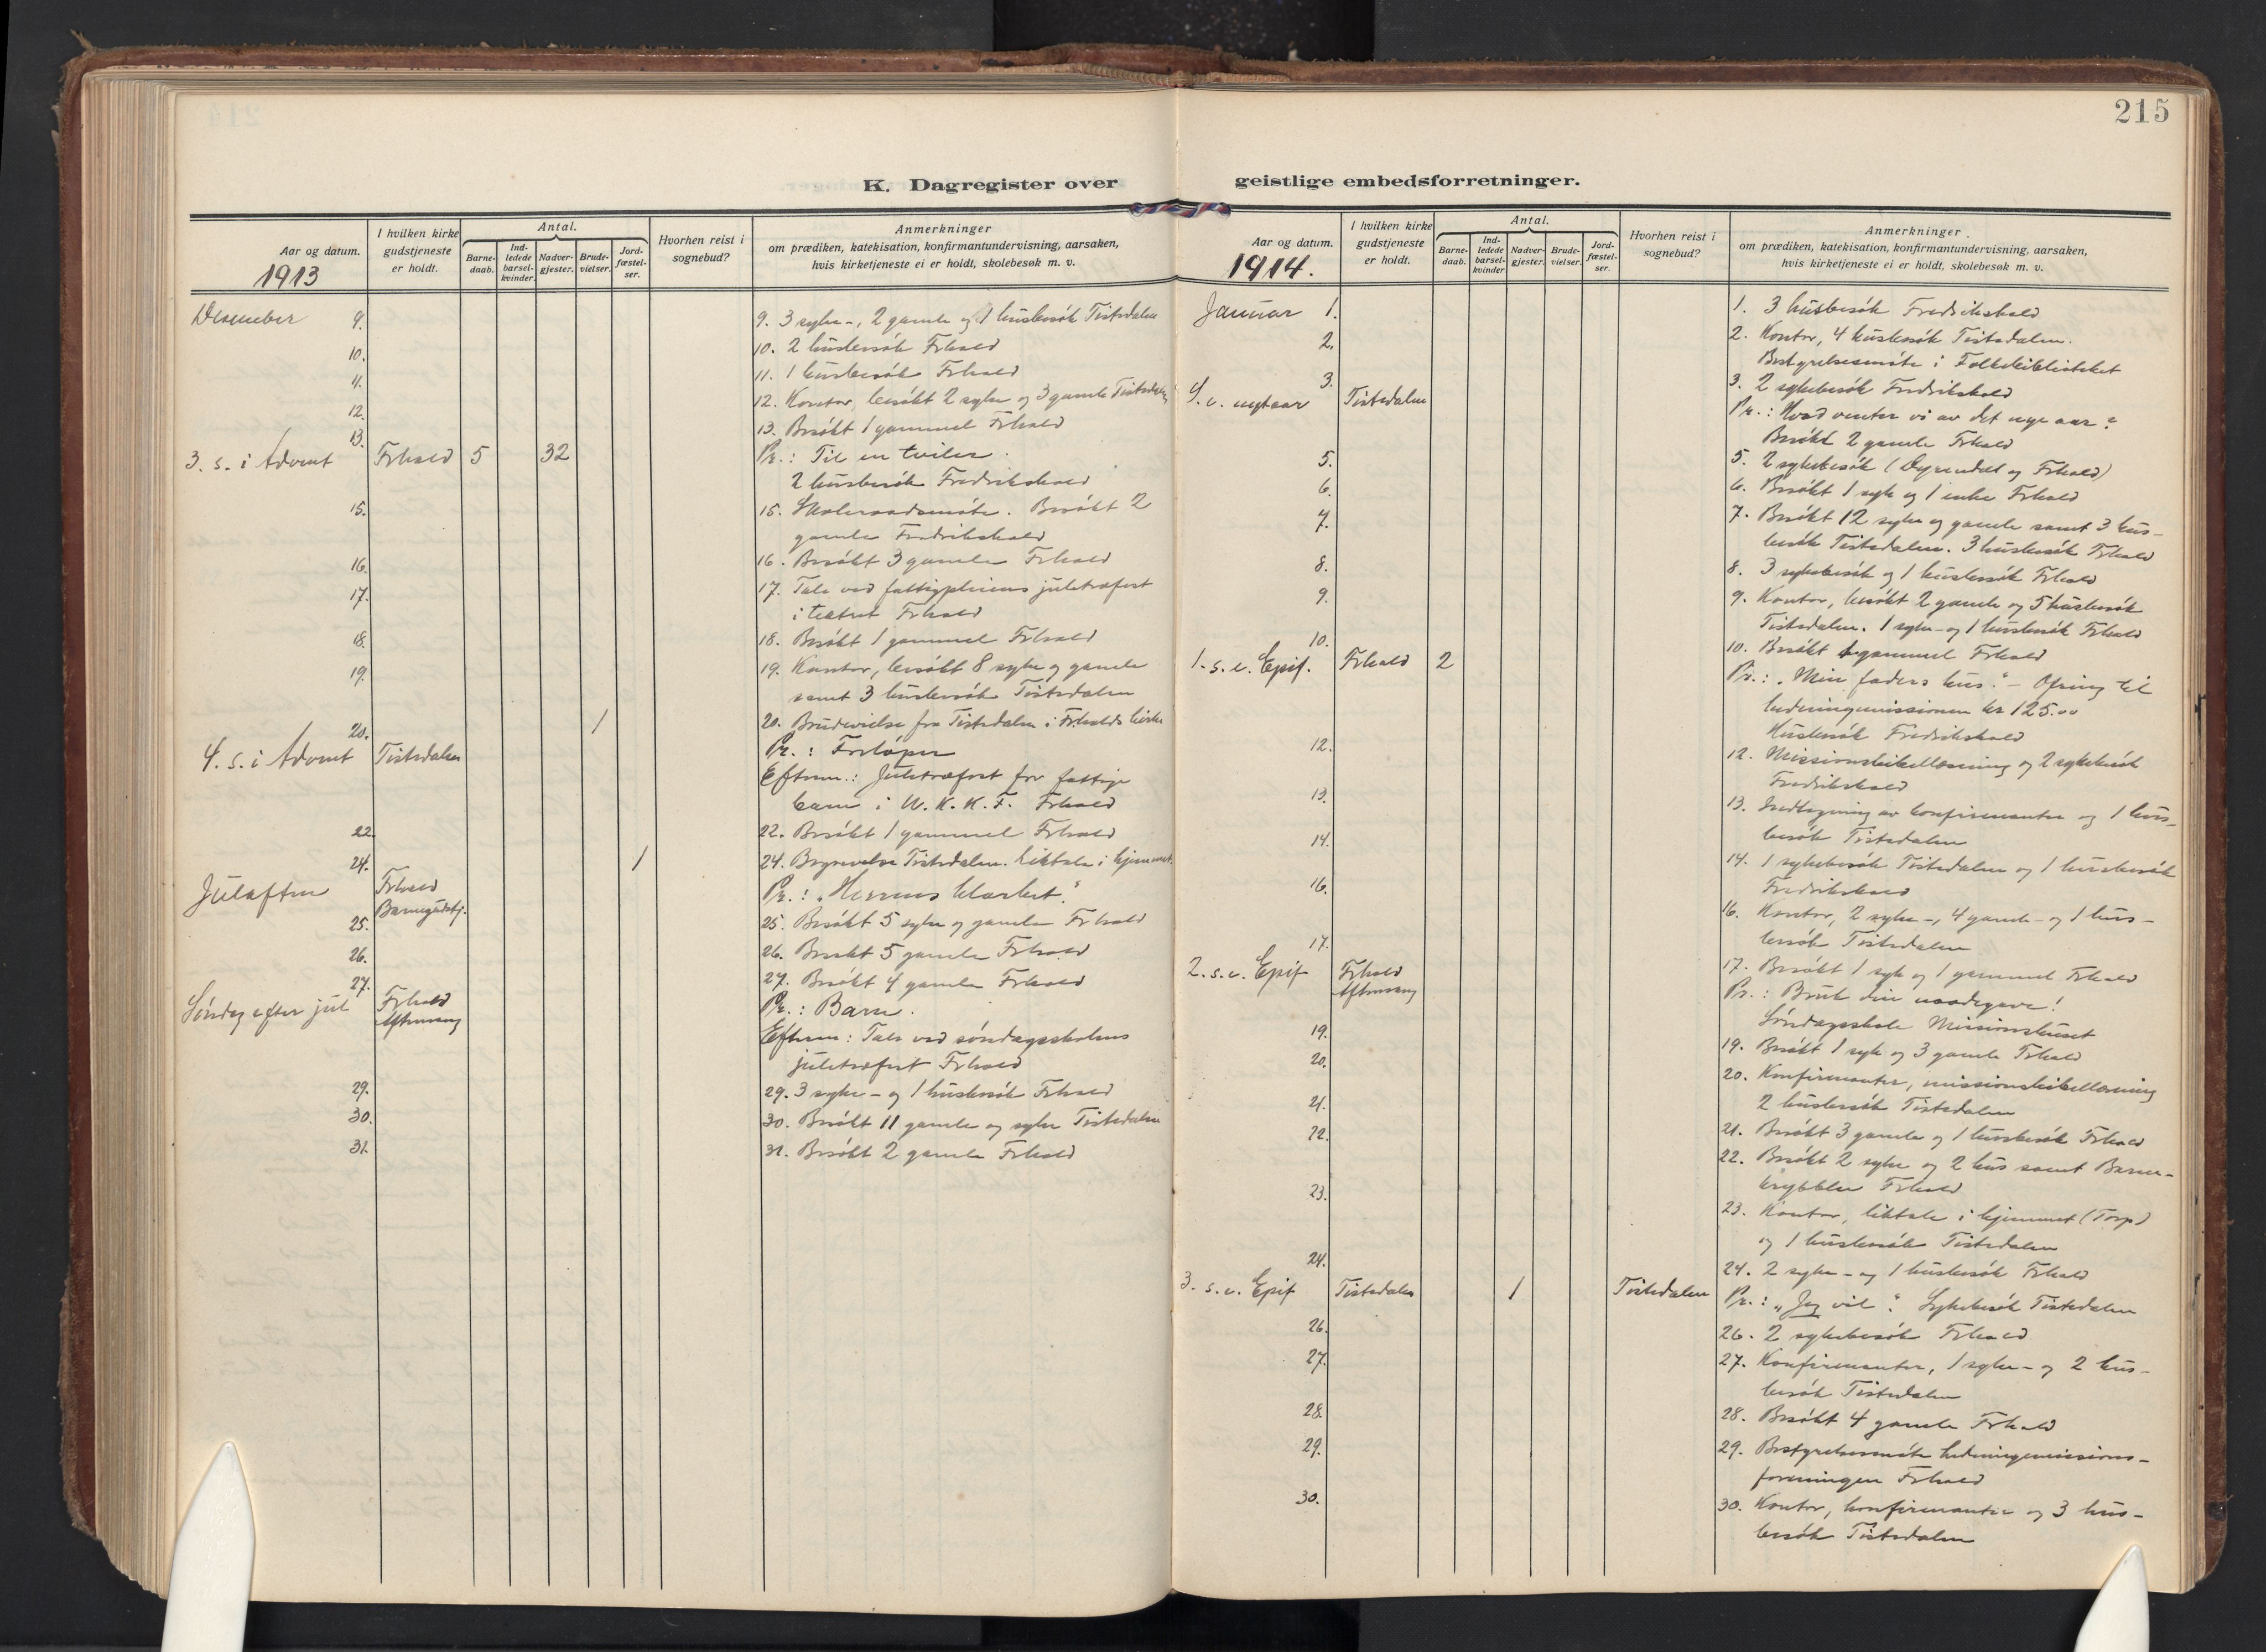 215
K. Dagregister over
geistlige embedsforretninger.
Aar og datum.
1913
I hvilken kirke
gudstjeneste
er holdt.
Antal.
Barne-
daab.
Ind-
ledede
barsel-
kvinder.
Nadver-
gjester.
Brude-
vielser.
Jord-
fæstel-
ser.
Hvorhen reist i
sognebud?
Anmerkninger
om prædiken, katekisation, konfirmantundervisning, aarsaken,
hvis kirketjeneste ei er holdt, skolebesøk m. v.
Desember 9.
9. 3 syke-, 2 gamle og 1 husbesøk Tistedalen
10.
10. 2 husbesøk Frhald
11.
11. 1 husbesøk Frhald
12.
12. Kontor, besøkt 2 syke og 3 gamle Tistedalen
13.
13. Besøkt 1 gammel Frhald
3. s. i Advent Frhald 5 32
Pr.: Til en tviler.
2 husbesøk Fredrikshald
15.
15. Skoleraadsmøte. Besøkt 2
gamle Fredrikshald
16.
16. Besøkt 3 gamle Frhald
17.
17. Tale ved fattigpleiens juletræfest
i teatret Frhald
18.
18. Besøkt 1 gammel Frhald
19.
19. Kontor, besøkt 8 syke og gamle
samt 3 husbesøk Tistedalen
20. 1
20. Brudevielse fra Tistedalen i Frhalds kirke
4. s. i Advent Tistedalen
Pr.: Forløper
Efterm.: Juletræfest for fattige
barn i U. K. K. F. Frhald
22.
22. Besøkt 1 gammel Frhald
24. 1
24. Begravelse Tistedalen. Liktale i hjemmet.
Julaften Frhald
Barnegudstj.
Pr.: "Herrens klarhet".
25.
25. Besøkt 5 syke og gamle Frhald
26.
26. Besøkt 5 gamle Frhald
27.
27. Besøkt 4 gamle Frhald
Søndag efter jul Frhald
Aftensang
Pr.: Barn.
Efterm: Tale ved søndagsskolens
juletræfest Frhald
29.
29. 3 syke- og 1 husbesøk Frhald
30.
30. Besøkt 11 gamle og syke Tistedalen
31.
31. Besøkt 2 gamle Frhald
Aar og datum.
1914.
I hvilken kirke
gudstjeneste
er holdt.
Antal.
Barne-
daab.
Ind-
ledede
barsel-
kvinder
Nadver-
gjester.
Brude-
vielser.
Jord-
fæstel-
ser.
Hvorhen reist i
sognebud?
Anmerkninger
om prædiken, katekisation, konfirmantundervisning, aarsaken,
hvis kirketjeneste ei er holdt, skolebesøk m. v.
Januar 1.
1. 3 husbesøk Fredrikshald
2.
2. Kontor, 4 husbesøk Tistedalen.
Bestyrelsesmøte i Folkebiblioteket
3.
3. 2 sykebesøk Fredrikshald
S. e. nytaar Tistedalen
Pr.: Hvad venter vi av det nye aar?
Besøkt 2 gamle Frhald
5.
5. 2 sykebesøk (Dyrendal og Frhald)
6.
6. Besøkt 1 syk og 1 enke Frhald
7.
7. Besøkt 12 syke og gamle samt 3 hus-
besøk Tistedalen. 3 husbesøk Frhald
8.
8. 3 sykebesøk og 1 husbesøk Frhald
9.
9. Kontor, besøkt 2 gamle og 5 husbesøk
Tistedalen. 1 syke- og 1 husbesøk Frhald
10.
10. Besøkt 1 gammel Frhald
1. s. e. Epif. Frhald 2
Pr.: "Min faders hus." - Ofring til
hedningemissionen kr 125.00
Husbesøk Fredrikshald
12.
12. Missionsbibellæsning og 2 sykebesøk
Fredrikshald
13.
13. Indtegning av konfirmanter og 1 hus-
besøk Tistedalen
14.
14. 1 sykebesøk Tistedalen og 1 husbesøk
Fredrikshald
16.
16. Kontor, 2 syke-, 4 gamle- og 1 hus-
besøk Tistedalen
17.
17. Besøkt 1 syk og 1 gammel Frhald
2. s. e. Epif Frhald
Aftensang
Pr.: Bruk din naadegave!
Søndagsskole Missionshuset
19.
19. Besøkt 1 syk og 3 gamle Frhald
20.
20. Konfirmanter, missionsbibellæsning
2 husbesøk Tistedalen
21.
21. Besøkt 3 gamle og 1 husbesøk Frhald
22.
22. Besøkt 2 syke og 2 hus samt Barne-
krybben Frhald
23.
23. Kontor, liktale i hjemmet (Torp)
og 1 husbesøk Tistedalen
24.
24. 2 syke- og 1 husbesøk Frhald
3. s. e. Epif Tistedalen 1 Tistedalen
Pr.: "Jeg vil". Sykebesøk Tistedalen
26.
26. 2 sykebesøk Frhald
27.
27. Konfirmanter, 1 syke- og 2 hus-
besøk Tistedalen
28.
28. Besøkt 4 gamle Frhald
29.
29. Bestyrelsesmøte hedningemissions-
foreningen Frhald
30.
30. Kontor, konfirmanter og 3 hus-
besøk Tistedalen